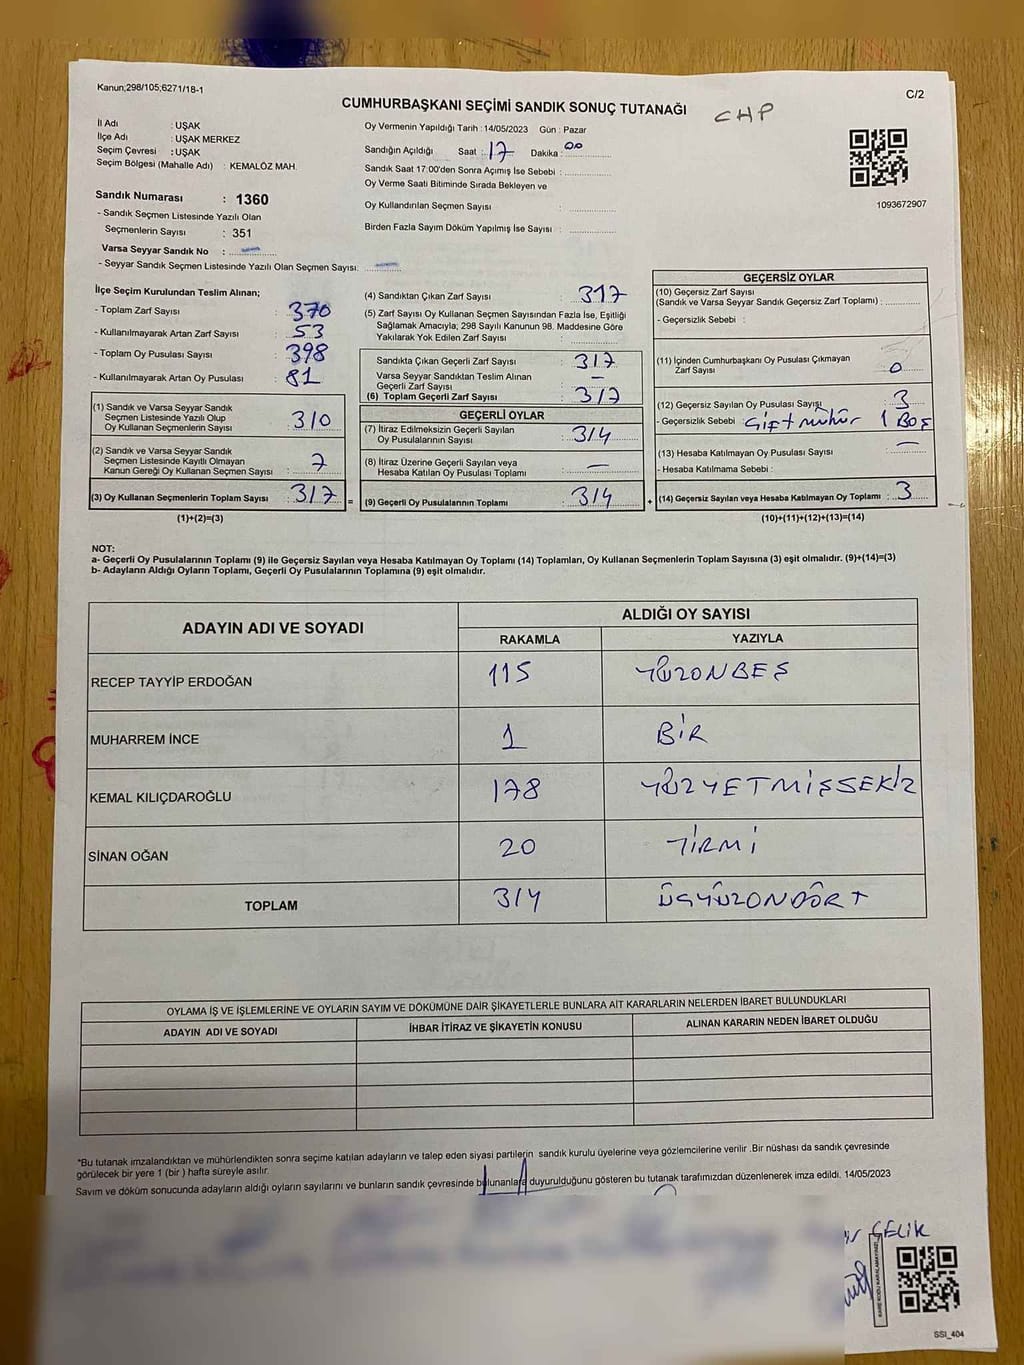 Kanun;298/105;6271/18-1
C/2
CUMHURBAŞKANI SEÇİMİ SANDIK SONUÇ TUTANAĞI
CHP
İl Adı : UŞAK
İlçe Adı : UŞAK MERKEZ
Seçim Çevresi : UŞAK
Seçim Bölgesi (Mahalle Adı) : KEMALÖZ MAH.
Oy Vermenin Yapıldığı Tarih : 14/05/2023 Gün : Pazar
Sandığın Açıldığı Saat : 17 Dakika : 00
Sandık Saat 17:00'den Sonra Açımış İse Sebebi :
Oy Verme Saati Bitiminde Sırada Bekleyen ve
Oy Kullandırılan Seçmen Sayısı :
Birden Fazla Sayım Döküm Yapılmış İse Sayısı :
1093672907
Sandık Numarası : 1360
- Sandık Seçmen Listesinde Yazılı Olan
Seçmenlerin Sayısı : 351
Varsa Seyyar Sandık No : —
- Seyyar Sandık Seçmen Listesinde Yazılı Olan Seçmen Sayısı: —
İlçe Seçim Kurulundan Teslim Alınan;
- Toplam Zarf Sayısı : 370
- Kullanılmayarak Artan Zarf Sayısı : 53
- Toplam Oy Pusulası Sayısı : 398
- Kullanılmayarak Artan Oy Pusulası : 81
(1) Sandık ve Varsa Seyyar Sandık
Seçmen Listesinde Yazılı Olup
Oy Kullanan Seçmenlerin Sayısı : 310
(2) Sandık ve Varsa Seyyar Sandık
Seçmen Listesinde Kayıtlı Olmayan
Kanun Gereği Oy Kullanan Seçmen Sayısı : 7
(3) Oy Kullanan Seçmenlerin Toplam Sayısı : 317
(1)+(2)=(3)
(4) Sandıktan Çıkan Zarf Sayısı : 317
(5) Zarf Sayısı Oy Kullanan Seçmen Sayısından Fazla İse, Eşitliği
Sağlamak Amacıyla; 298 Sayılı Kanunun 98. Maddesine Göre
Yakılarak Yok Edilen Zarf Sayısı :
Sandıkta Çıkan Geçerli Zarf Sayısı : 317
Varsa Seyyar Sandıktan Teslim Alınan
Geçerli Zarf Sayısı : —
(6) Toplam Geçerli Zarf Sayısı : 317
GEÇERLİ OYLAR
(7) İtiraz Edilmeksizin Geçerli Sayılan
Oy Pusulalarının Sayısı : 314
(8) İtiraz Üzerine Geçerli Sayılan veya
Hesaba Katılan Oy Pusulası Toplamı : —
= (9) Geçerli Oy Pusulalarının Toplamı : 314
GEÇERSİZ OYLAR
(10) Geçersiz Zarf Sayısı
(Sandık ve Varsa Seyyar Sandık Geçersiz Zarf Toplamı) :
- Geçersizlik Sebebi :
(11) İçinden Cumhurbaşkanı Oy Pusulası Çıkmayan
Zarf Sayısı : 0
(12) Geçersiz Sayılan Oy Pusulası Sayısı : 3
- Geçersizlik Sebebi : Çift mühür 1 BOŞ
(13) Hesaba Katılmayan Oy Pusulası Sayısı : —
- Hesaba Katılmama Sebebi :
+ (14) Geçersiz Sayılan veya Hesaba Katılmayan Oy Toplamı : 3
(10)+(11)+(12)+(13)=(14)
NOT:
a- Geçerli Oy Pusulalarının Toplamı (9) ile Geçersiz Sayılan veya Hesaba Katılmayan Oy Toplamı (14) Toplamları, Oy Kullanan Seçmenlerin Toplam Sayısına (3) eşit olmalıdır. (9)+(14)=(3)
b- Adayların Aldığı Oyların Toplamı, Geçerli Oy Pusulalarının Toplamına (9) eşit olmalıdır.
ADAYIN ADI VE SOYADI ALDIĞI OY SAYISI
RAKAMLA YAZIYLA
RECEP TAYYİP ERDOĞAN 115 YÜZONBEŞ
MUHARREM İNCE 1 BİR
KEMAL KILIÇDAROĞLU 178 YÜZYETMİŞSEKİZ
SİNAN OĞAN 20 YİRMİ
TOPLAM 314 ÜÇYÜZONDÖRT
OYLAMA İŞ VE İŞLEMLERİNE VE OYLARIN SAYIM VE DÖKÜMÜNE DAİR ŞİKAYETLERLE BUNLARA AİT KARARLARIN NELERDEN İBARET BULUNDUKLARI
ADAYIN ADI VE SOYADI İHBAR İTİRAZ VE ŞİKAYETİN KONUSU ALINAN KARARIN NEDEN İBARET OLDUĞU
*Bu tutanak imzalandıktan ve mühürlendikten sonra seçime katılan adayların ve talep eden siyasi partilerin sandık kurulu üyelerine veya gözlemcilerine verilir .Bir nüshası da sandık çevresinde
görülecek bir yere 1 (bir ) hafta süreyle asılır.
Sayım ve döküm sonucunda adayların aldığı oyların sayılarını ve bunların sandık çevresinde bulunanlara duyurulduğunu gösteren bu tutanak tarafımızdan düzenlenerek imza edildi. 14/05/2023
ÇELİK
KAREKODU KARALAMAYINIZ
SSI_404